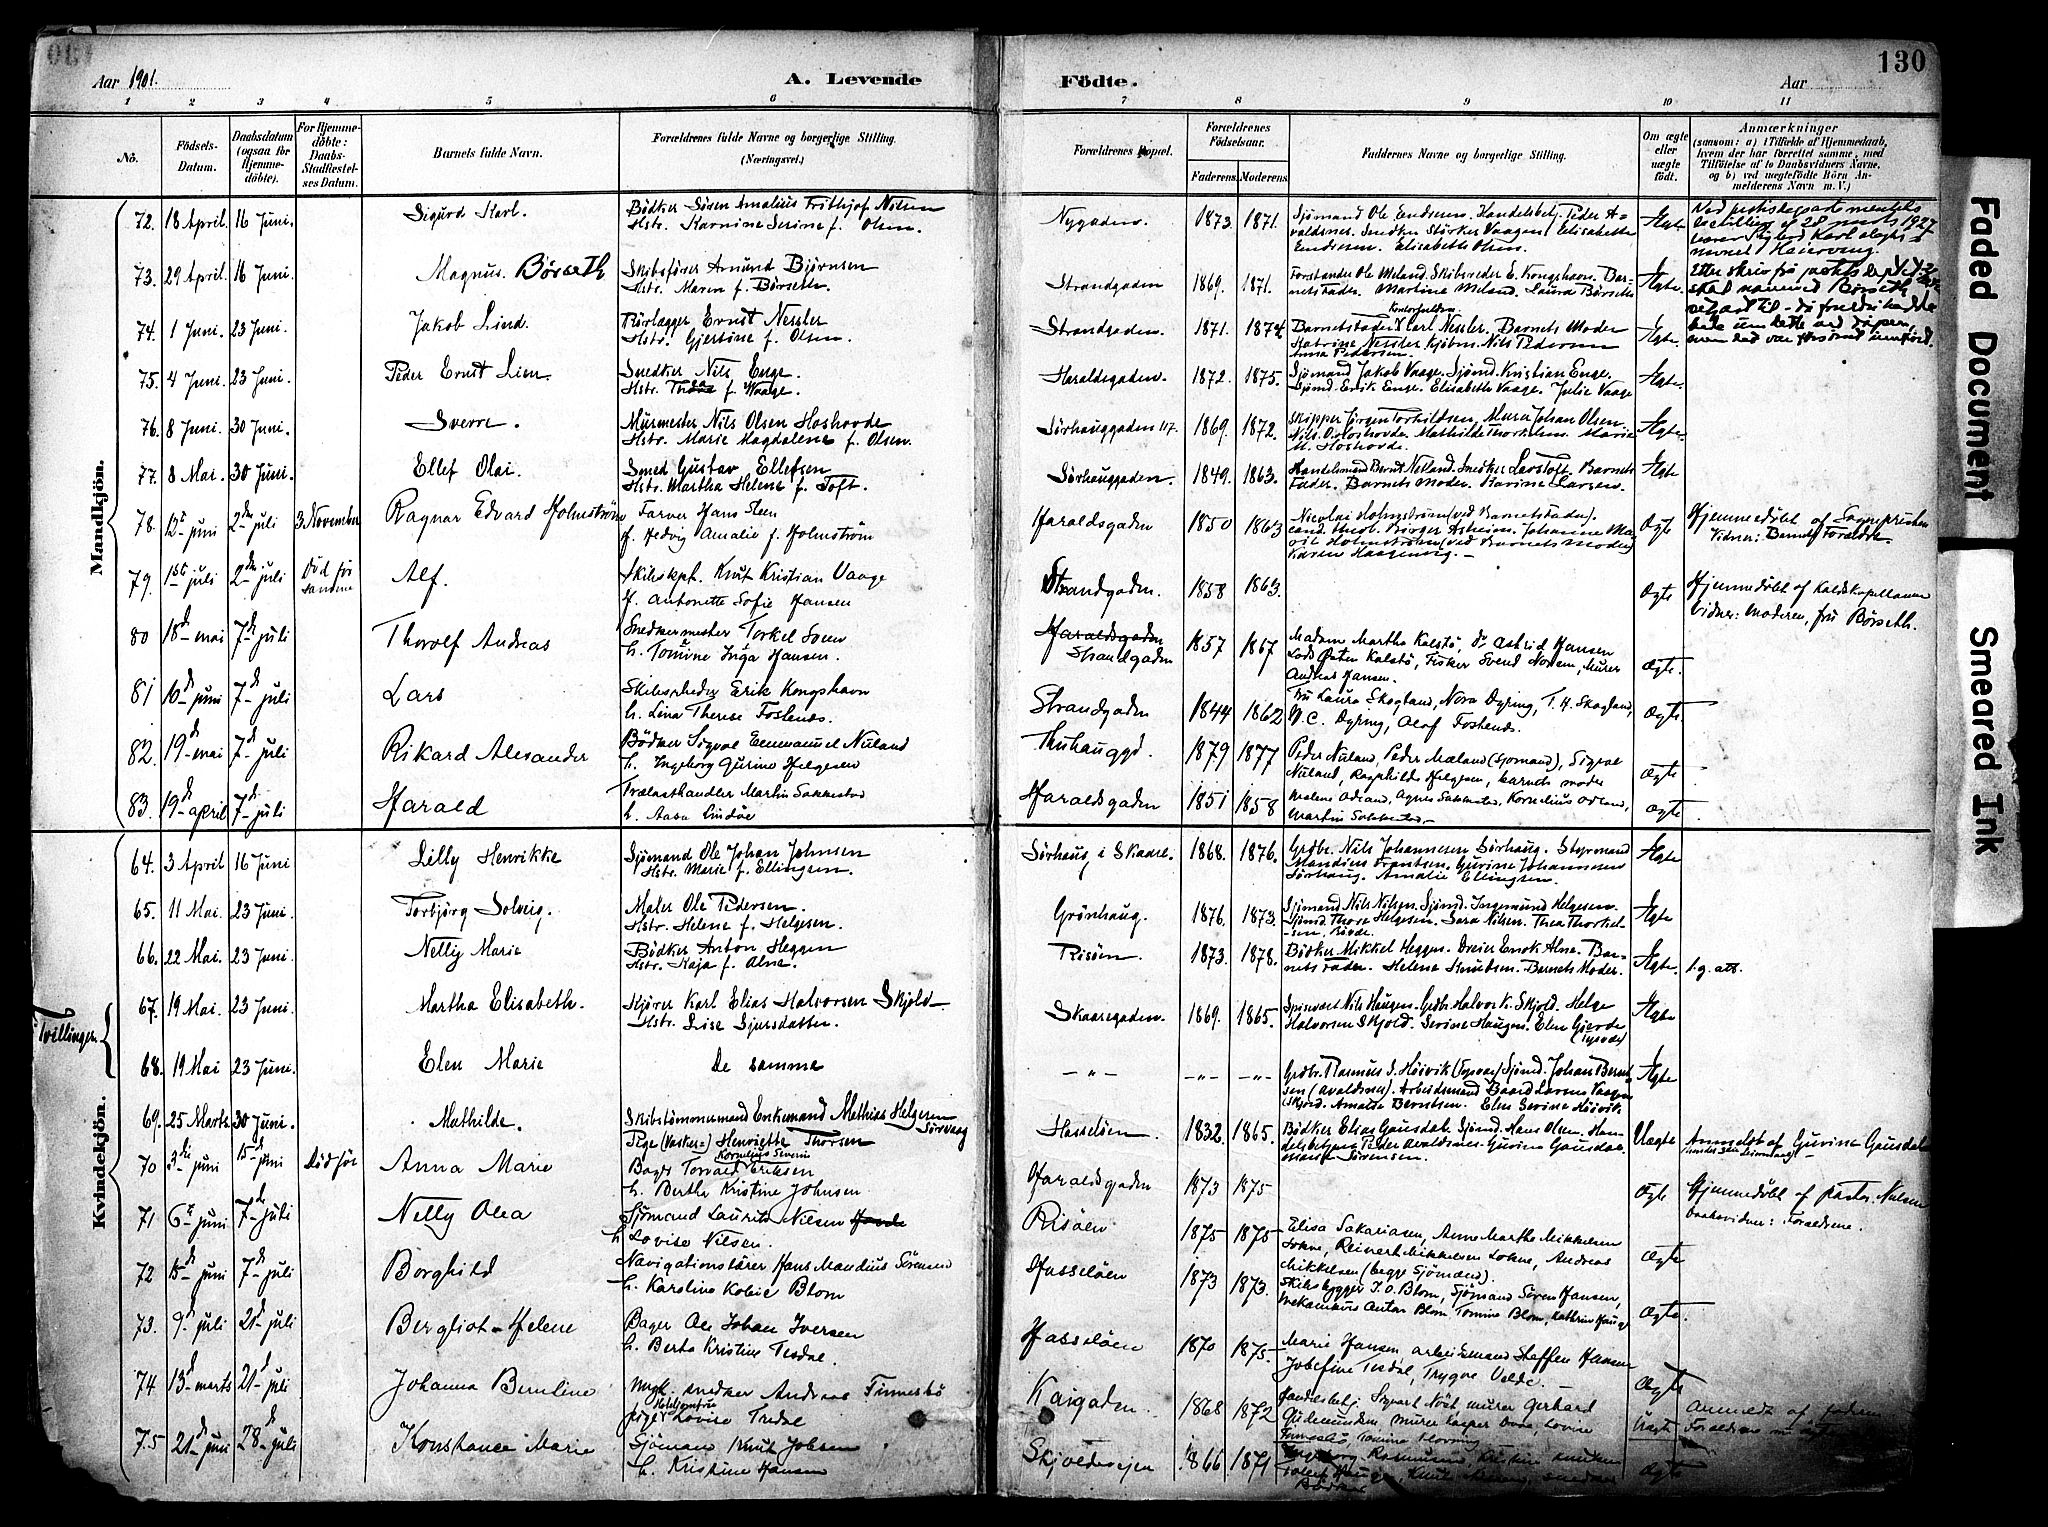 130
Aar 1901.
A. Levende
Födte.
Aar
1 2 3 4 5 6 7 8 9 10 11
No.
Födsels-Datum.
Daabsdatum (ogsaa for Hjemmedöbte).
For Hjemmedöbte: Daabs-Stadfæstelses Datum.
Barnets fulde Navn.
Forældrenes fulde Navne og borgerlige Stilling. (Næringsvei.)
Forældrenes Bopæl.
Forældrenes Födselsaar.
Faderens. Moderens.
Faddernes Navne og borgerlige Stilling.
Om ægte eller uægte födt.
Anmærkninger
(saasom: a) i Tilfælde af Hjemmedaab, hvem der har forrettet samme, med Tilföielse af to Daabsvidners Navne, og b) ved uegtefödte Börn Anmelderens Navn m. V.)
Mandkjön.
72. 18 April. 16 Juni. Sigurd Karl. Bödker Sören Amalius Frithjof Nilsen
Hstr. Karnine Serine f. Olsen. Nygaden. 1873. 1871. Ægte
73. 29 April. 16 Juni. Magnus. Börseth Skibsförer Amund Bjørnsen
Hstr. Maren f. Börseth. Strandgaden 1869. 1871. Forstander Ole Meland. Skibsreder E. Kongshavn. Barnets Fader. Martine Meland. Laura Börseth Ægte.
74. 1 Juni. 23 Juni. Jakob Lind. Rörlægger Ernst Nessler
Hstr. Gjertine f. Olsen. Strandgaden. 1871. 1874 Barnets Fader. Karl Nessler. Barnets Moder
Katrine Nessler. Nils Pedersen
Anna Pedersen. Ægte.
75. 4 Juni. 23 Juni. Peder Ernst Lien. Snedker Nils Enge.
Hstr. f. Waage. Haraldsgaden. 1872. 1875. Sjömand Jakob Vaage. Sjömd. Kristian Enge.
Sjömd. Erik Enge. Elisabeth Vaage. Julie Vaage Ægte.
76. 8 Juni. 30 Juni. Sverre. Murmester Nils Olsen Hoshovde
Hstr. Marie Magdalene f. Olsen. Sörhauggaden 117. 1869. 1872. Skipper Jörgen Torkildsen. Murer Johan Olsen.
Nils O. Hoshovde. Mathilde Thorkelsen. Marie
M. Hoshovde. Ægte.
77. 8 Mai. 30 Juni. Ellef Olai. Smed Gustav Ellefsen
Hstr. Martha Helene f. Toft. Sörhauggaden. 1849. 1863. Handelsmand Bernt Netland. Snedker Lars Toft. Barnets
Fader. Barnets Moder. Karine Larsen. Ægte
78. 12te juni 2den juli 3. November Ragnar Edvard Holmström Farver Hans Steen
H. Hedvig Amalie f. Holmström Haraldsgaden 1850 1863 Nicolai Holmström (ved Barnets fader).
Ægte Hjemmedöbt af Sognepresten
Vidner: Barnets Foræeldre.
79. 1ste juli 2den juli Död Alf. Skibskpt. Knut Kristian Vaage
H. Antonette Sofie Hansen Strandgaden. 1858 1863. Ægte Hjemmedöbt af Kaldskapellanen
Vidner: Moderen, fru Börseth.
80 18de mai 7de juli Thorolf Andreas Snedkermester Torkel Svens
h. Tomine Inga Hansen. Haraldsgaden
Strandgaden 1857 1867 Madam Martha Kalstö, Dr Astrid Hansen
Lods Östen Kalstö, Fisker Svend Nordsen, Murer
Andreas Hansen. Ægte.
81 10de juni 7de juli Lars Skibsrheder Erik Kongshavn
h. Lina Therese Foslends. Strandgaden 1844 1862 Fru Laura Skogland, Nora Dyring, T. H. Skogland,
N. C. Dyring, Olaf Foslends. Ægte.
82. 19de mai 7de juli Rikard Alexander Bödker Sigval Emmanuel Nuland
h. Ingeborg Gurine Helgesen Thuhauggd. 1879 1877 Peder Nuland, Peder Mæland (Sjömand), Sigval
Nuland, Ragnhild Helgesen, barnets moder Ægte
83. 19de april 7de juli Harald Trælasthandler Martin Sakkestad
h. Aasa Lindöe Haraldsgaden 1851 1858 Malene Odland, Agnes Sakkestad, Kornelius Odland,
Martin Sakkestad. Ægte
Kvindekjön.
64. 3 April 16 Juni Lilly Henrikke Sjömand Ole Johan Johnsen
Hstr. Marie f. Ellingsen. Sörhaug i Skaare. 1868. 1876. Grdbr. Nils Johannesen Sörhaug. Styrmand
Mandius Frantsen. Gurine Johannesen
Sörhaug. Amalie Ellingsen. Ægte
65. 11 Mai. 23 Juni. Torbjörg Solveig. Maler Ole Pedersen.
Hstr. Helene f. Helgesen. Grönhaug. 1876. 1873. Sjömand Nils Nilsen. Sjömd. Ingemund Helgesen.
Sjömd. Thore Helgesen. Sara Nilsen. Thea Thorkelsen. Ægte
66. 22 Mai. 23 Juni. Nelly Marie Bödker Anton Heggen
Hstr. Kaja f. Alne. Risöen. 1873. 1878. Bödker Mikkel Heggen. Dreier Enok Alne. Barnets Fader. Helene Knudsen. Barnets Moder. Ægte
Tvillinger.
67. 19 Mai. 23 Juni. Martha Elisabeth. Kjörer Karl Elias Halvorsen Skjold
Hstr. Lise Sjursdatter. Skaaregaden. 1869. 1865. Nils Haugen. Grdbr. Halvor K. Skjold. Helge
Halvorsen Skjold. Serine Haugen. Elen Gjerde
(Tysvær) Ægte
68. 19 Mai 23 Juni. Elen Marie De samme - " - - " - - " - Grdbr. Rasmus S. Höivik (Tysvær) Sjömd. Johan Berntsen (Avaldsnes). Arbeidsmand Baard Larsen Vaagen
(Skjold. Amalie Berntsen. Elen Serine Höivik. Ægte
69. 25 Marts 30 Juni. Mathilde. Skibstömmermand Enkemand Mathias Helgesen
Sörvaag
Pige (Vasker=) Henriette Thorsen Hasselöen. 1832. 1865. Bödker Elias Gausdal. Sjömd. Hans Olsen. Handelsbetjent Peder Avaldsnes. Gurine Gausdal.
Sörensen. Uægte Anmeldt af Gurine Gausdal
70 3die juni 15de juni Död för Anna Marie Bager Torvald Kornelius Severin Eriksen
h. Berthe Kristine Johnsen Haraldsgaden 1873 1875 Ægte Hjemmedöbt af pastor Nielsen
Daabsvidner: Foræeldrene.
71 6te juni 7de juli Nelly Olea Sjömand Laurits Nilsen
h Lovise Nilsen. Risöen 1875 1875 Elisa Sakariasen, Anne Marthe Mikkelsen
Lokne, Reinert Mikkelsen Lokne, Andreas
Mikkelsen (begge Sjömænd). Ægte
72 15de juni 7de juli Borghild Navigationslærer Hans Mandius Sörensen
h. Karoline Kobie Blom Hasselöen 1873 1873. Skibsbygger J. O. Blom, Sjömand Sören Hansen,
Mekanikus Anton Blom, Tomine Blom, Kathrine Hauge Ægte.
73. 9de juli 21de juli Bergliot Helene Bager Ole Johan Iversen
h. Berta Kristine Tesdal. Hasselöen 1870 1875. Marie Hansen arbeidsmand Steffen Hansen
Josefine Tesdal, Trygve Velde. Ægte
74 13de marts 21de juli Johanna Berntine Ungk. snedker Andreas Finnesbö
pige Lovise Tredal Kaigaden. 1868 1872 Handelsbetj. Sigvart Nöst murer Gerhard
Gudemundsen, murer Kasper Dova, Lovise
Uægte
75 21de juni 28de juli Konstance Marie Sjöman Knut Jobsen
h. Kristine Hansen Skjoldavejen 1866 1871 Ægte
Faded Document
Smeared Ink